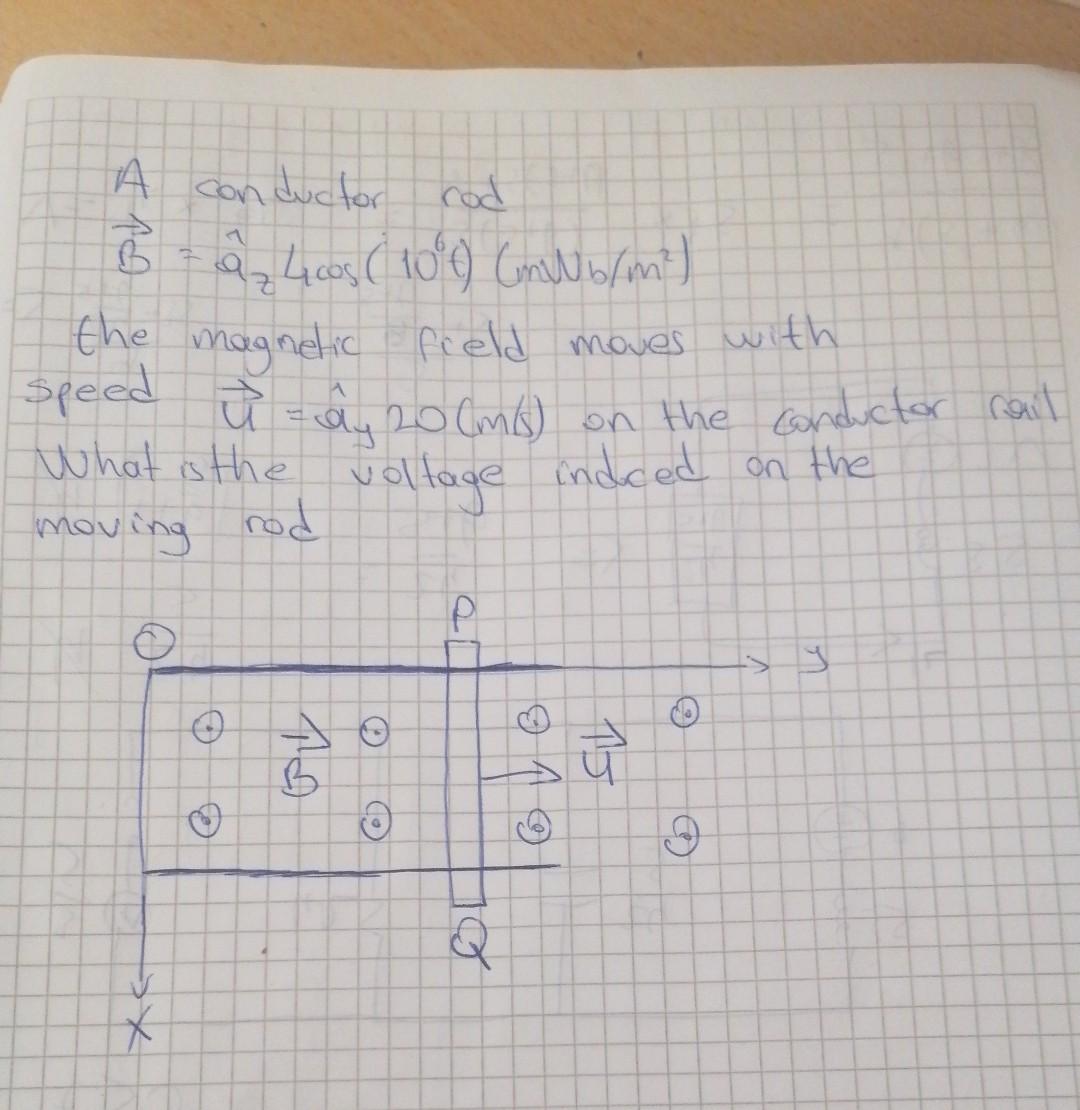 A conductor rod
B⃗ = â_z 4cos(10⁶t) (mWb/m²)
the magnetic field moves with
speed u⃗ = â_y 20(m/s) on the conductor rail
What is the voltage indced on the
moving rod
P
y
B⃗ u⃗
Q
x